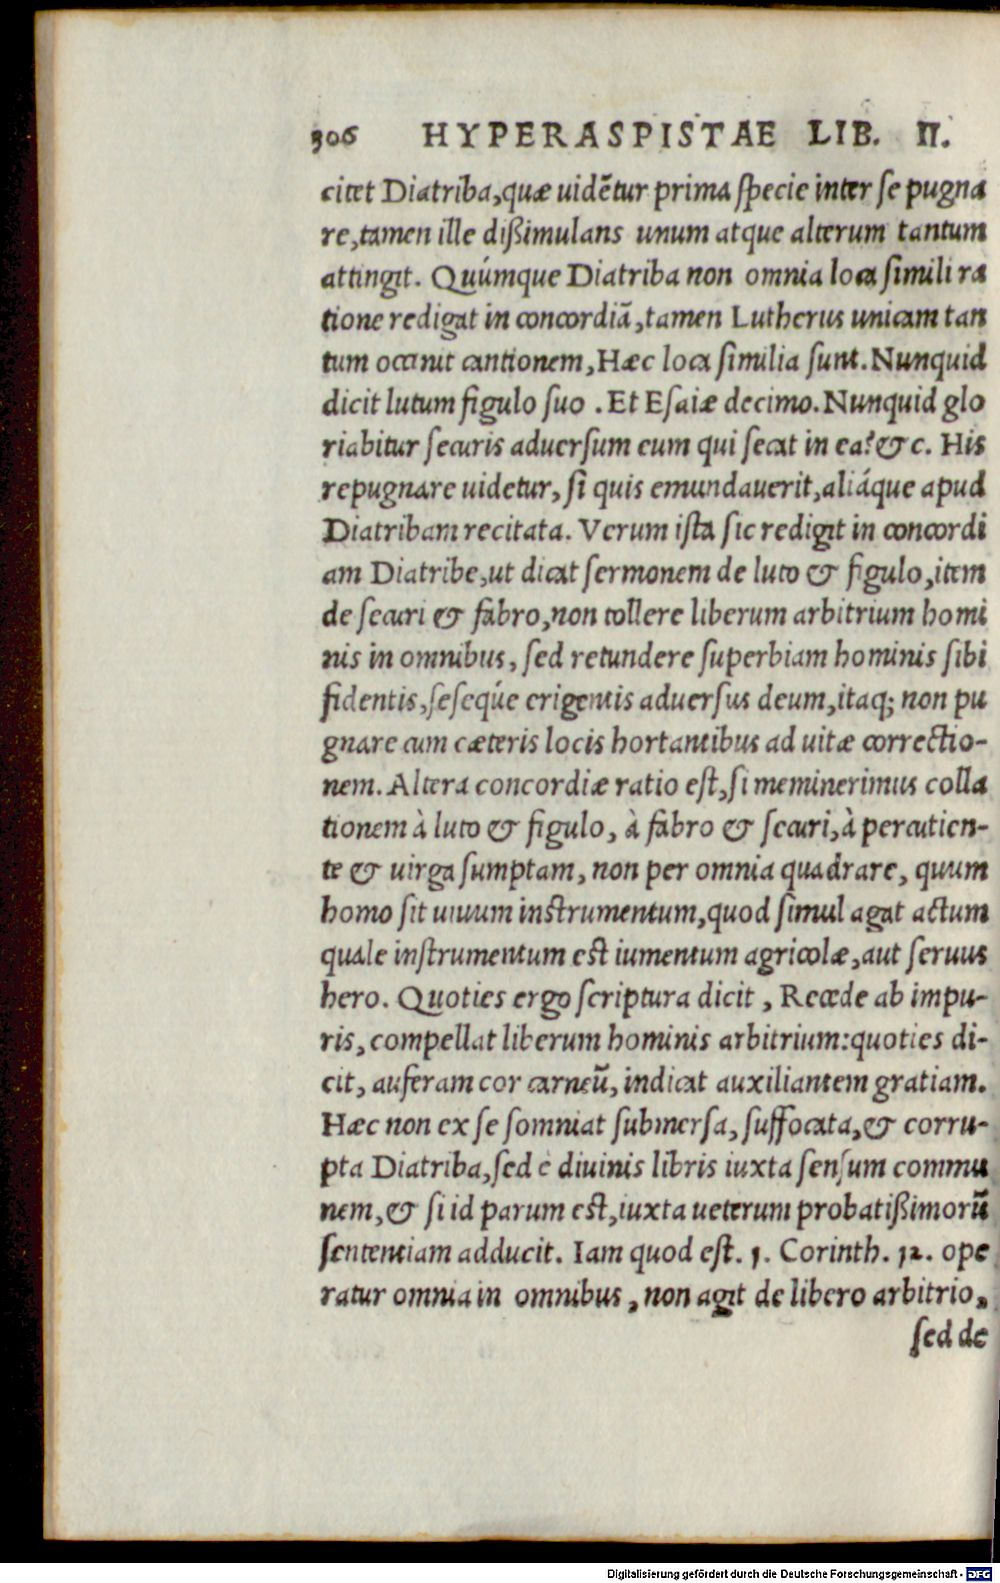 306 HYPERASPISTAE LIB. II.
citet Diatriba,quæ uidẽtur prima specie inter se pugna
re,tamen ille dißimulans unum atque alterum tantum
attingit. Quúmque Diatriba non omnia loca simili ra
tione redigat in concordiã,tamen Lutherus unicam tan
tum occinit cantionem,Hæc loca similia sunt.Nunquid
dicit lutum figulo suo .Et Esaiæ decimo.Nunquid glo
riabitur securis aduersum eum qui secat in ea?&c. His
repugnare uidetur,si quis emundauerit,aliáque apud
Diatribam recitata. Verum ista sic redigit in concordi
am Diatribe,ut dicat sermonem de luto & figulo,item
de securi & fabro,non tollere liberum arbitrium homi
nis in omnibus, sed retundere superbiam hominis sibi
fidentis,seseq́ue erigentis aduersus deum,itaq; non pu
gnare cum cæteris locis hortantibus ad uitæ correctio-
nem. Altera concordiæ ratio est,si meminerimus colla
tionem à luto & figulo, à fabro & securi,à percutien-
te & uirga sumptam, non per omnia quadrare, quum
homo sit uiuum instrumentum,quod simul agat actum
quale instrumentum est iumentum agricolæ,aut seruus
hero. Quoties ergo scriptura dicit , Recede ab impu-
ris,compellat liberum hominis arbitrium:quoties di-
cit, auferam cor carneũ,indicat auxiliantem gratiam.
Hæc non ex se somniat submersa, suffocata,& corru-
pta Diatriba,sed è diuinis libris iuxta sensum commu
nem,& si id parum est,iuxta ueterum probatißimorũ
sententiam adducit. Iam quod est. 1. Corinth. 12. ope
ratur omnia in omnibus , non agit de libero arbitrio,
sed de
Digitalisierung gefördert durch die Deutsche Forschungsgemeinschaft - DFG